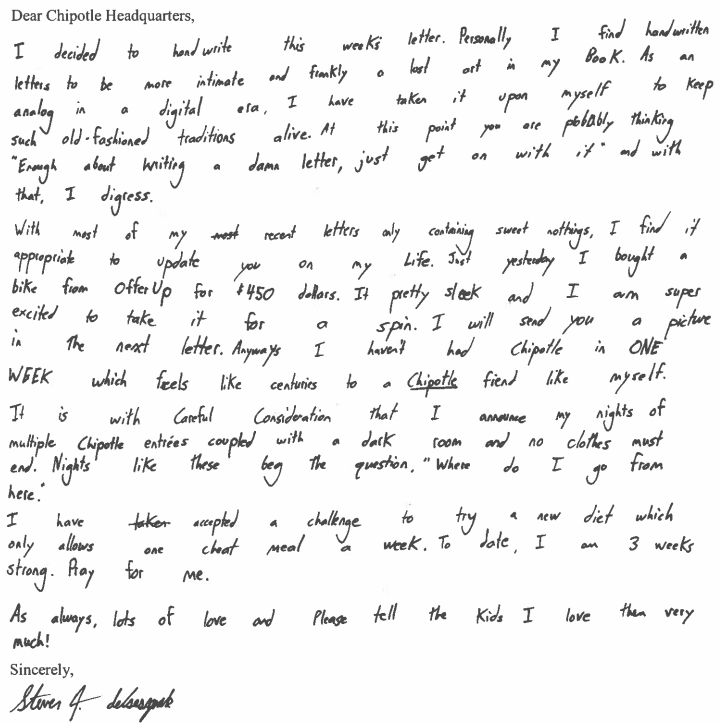 Dear Chipotle Headquarters,
I decided to handwrite this weeks letter. Personally I find handwritten
letters to be more intimate and frankly a lost art in my Book. As an
analog in a digital era, I have taken it upon myself to keep
such old-fashioned traditions alive. At this point you are pobbably thinking
"Enough about writing a damn letter, just get on with it" and with
that, I digress.
With most of my most recent letters only containing sweet nothings, I find it
appropriate to update you on my Life. Just yesterday I bought a
bike from OfferUp for $450 dollars. It pretty sleek and I am super
excited to take it for a spin. I will send you a picture
in The next letter. Anyways I haven't had Chipotle in ONE
WEEK which feels like centuries to a Chipotle fiend like myself.
It is with Careful Consideration that I announce my nights of
multiple Chipotle entrées coupled with a dark room and no clothes must
end. Nights like these beg The question, "Where do I go from
here."
I have taken accepted a challenge to try a new diet which
only allows one cheat meal a week. To date, I am 3 weeks
strong. Pray for me.
As always, lots of love and Please tell the Kids I love them very
much!
Sincerely,
Steven J.